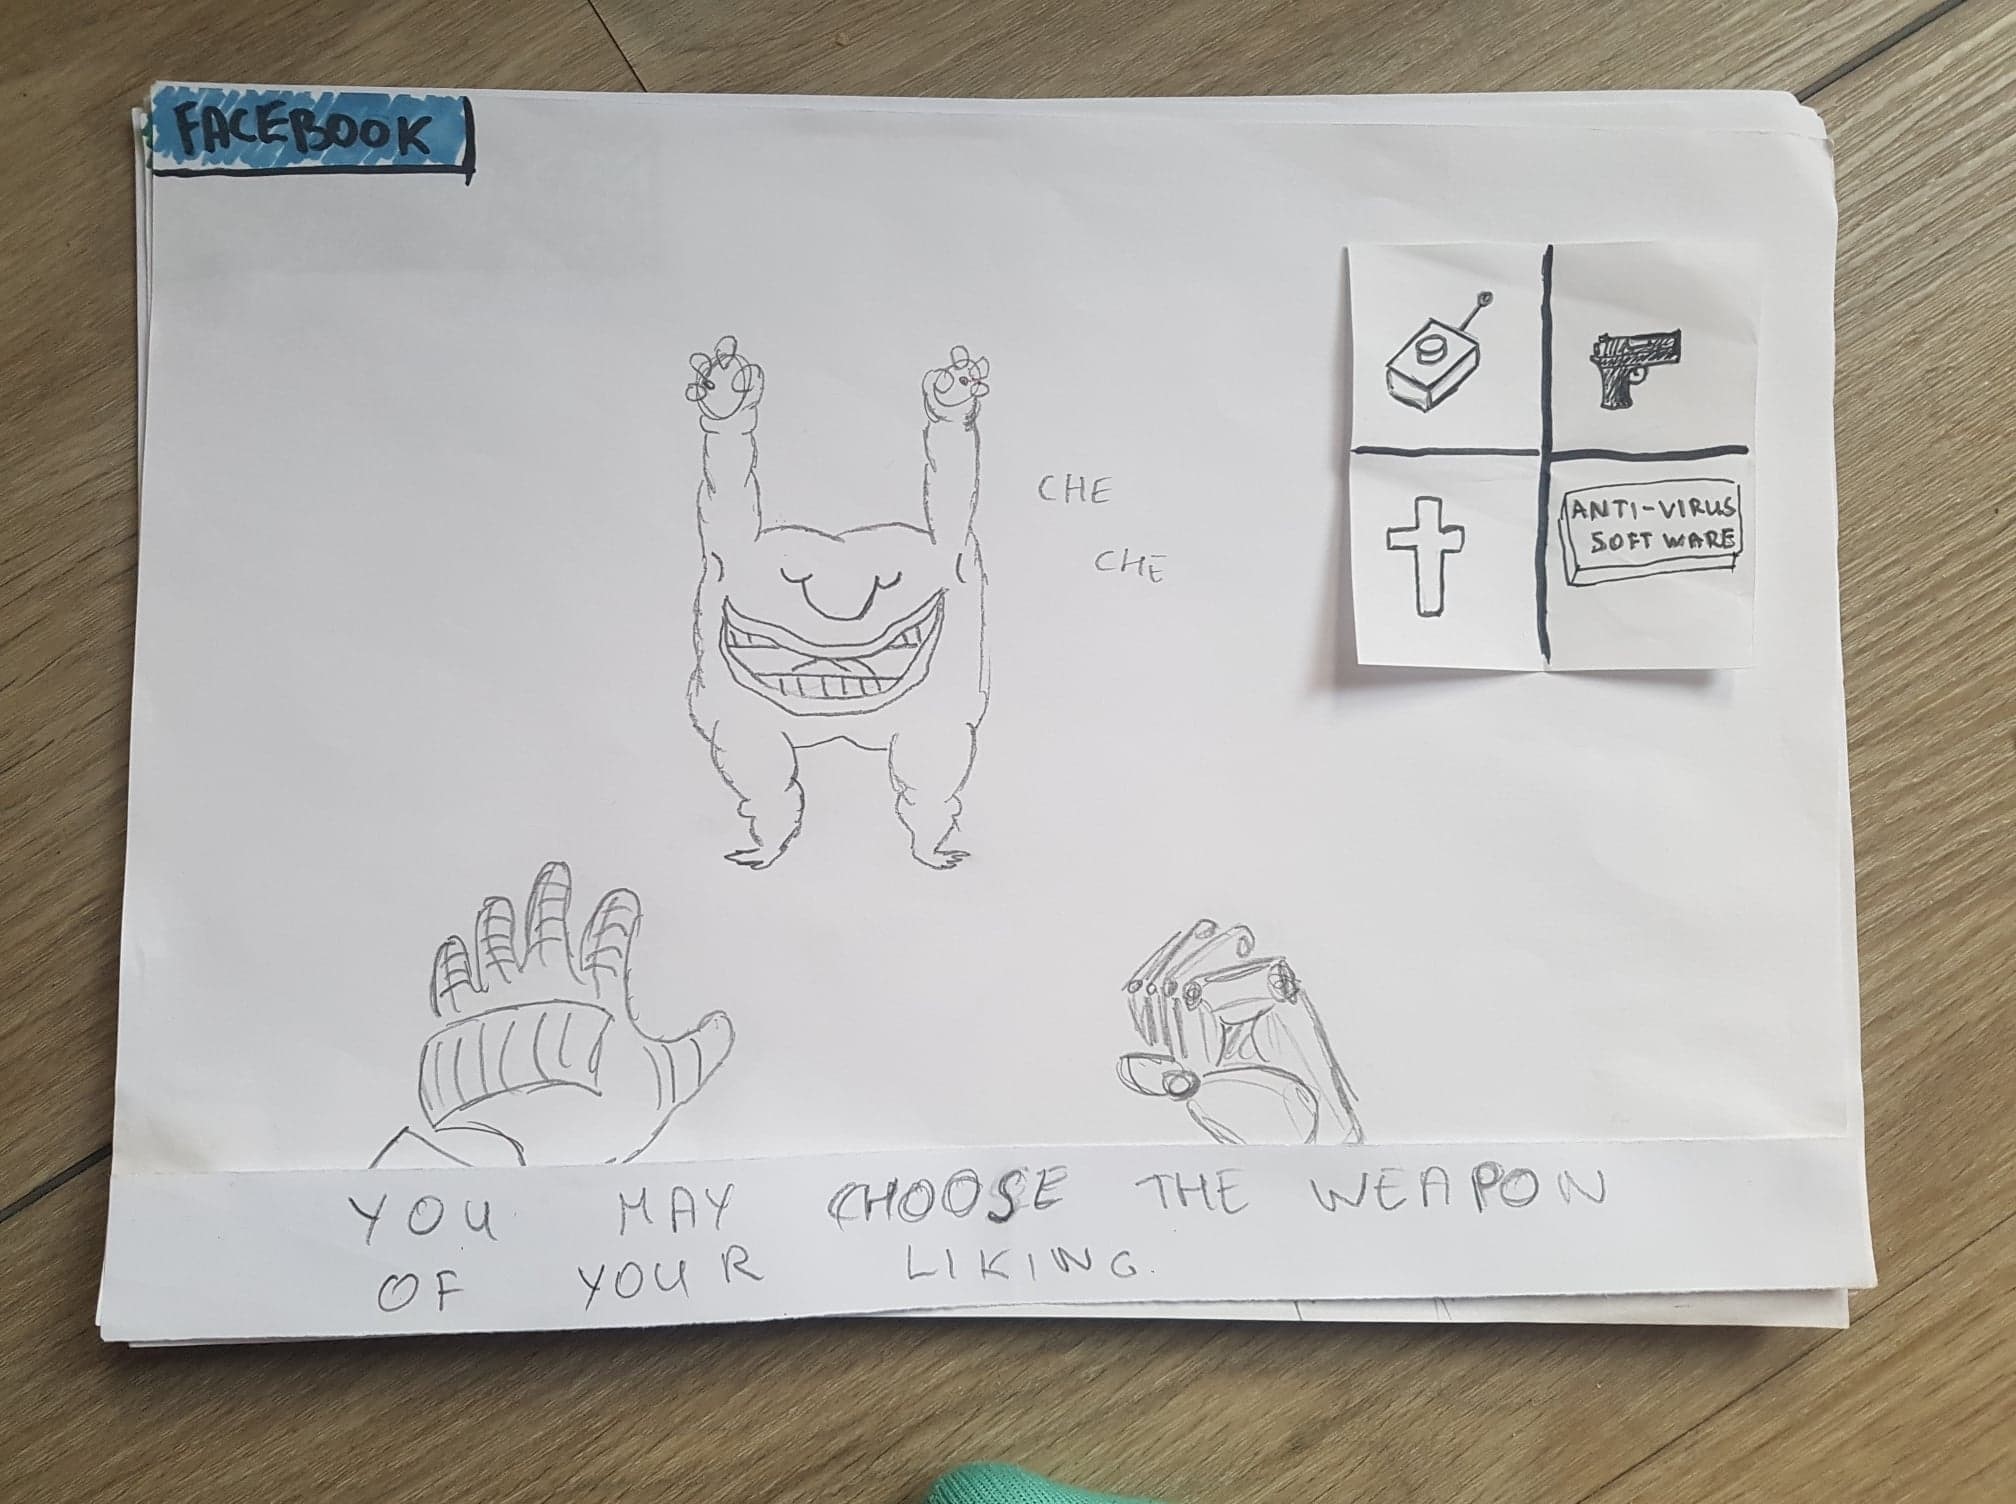 FACEBOOK
CHE
CHE
ANTI-VIRUS
SOFTWARE
YOU MAY CHOOSE THE WEAPON
OF YOUR LIKING.